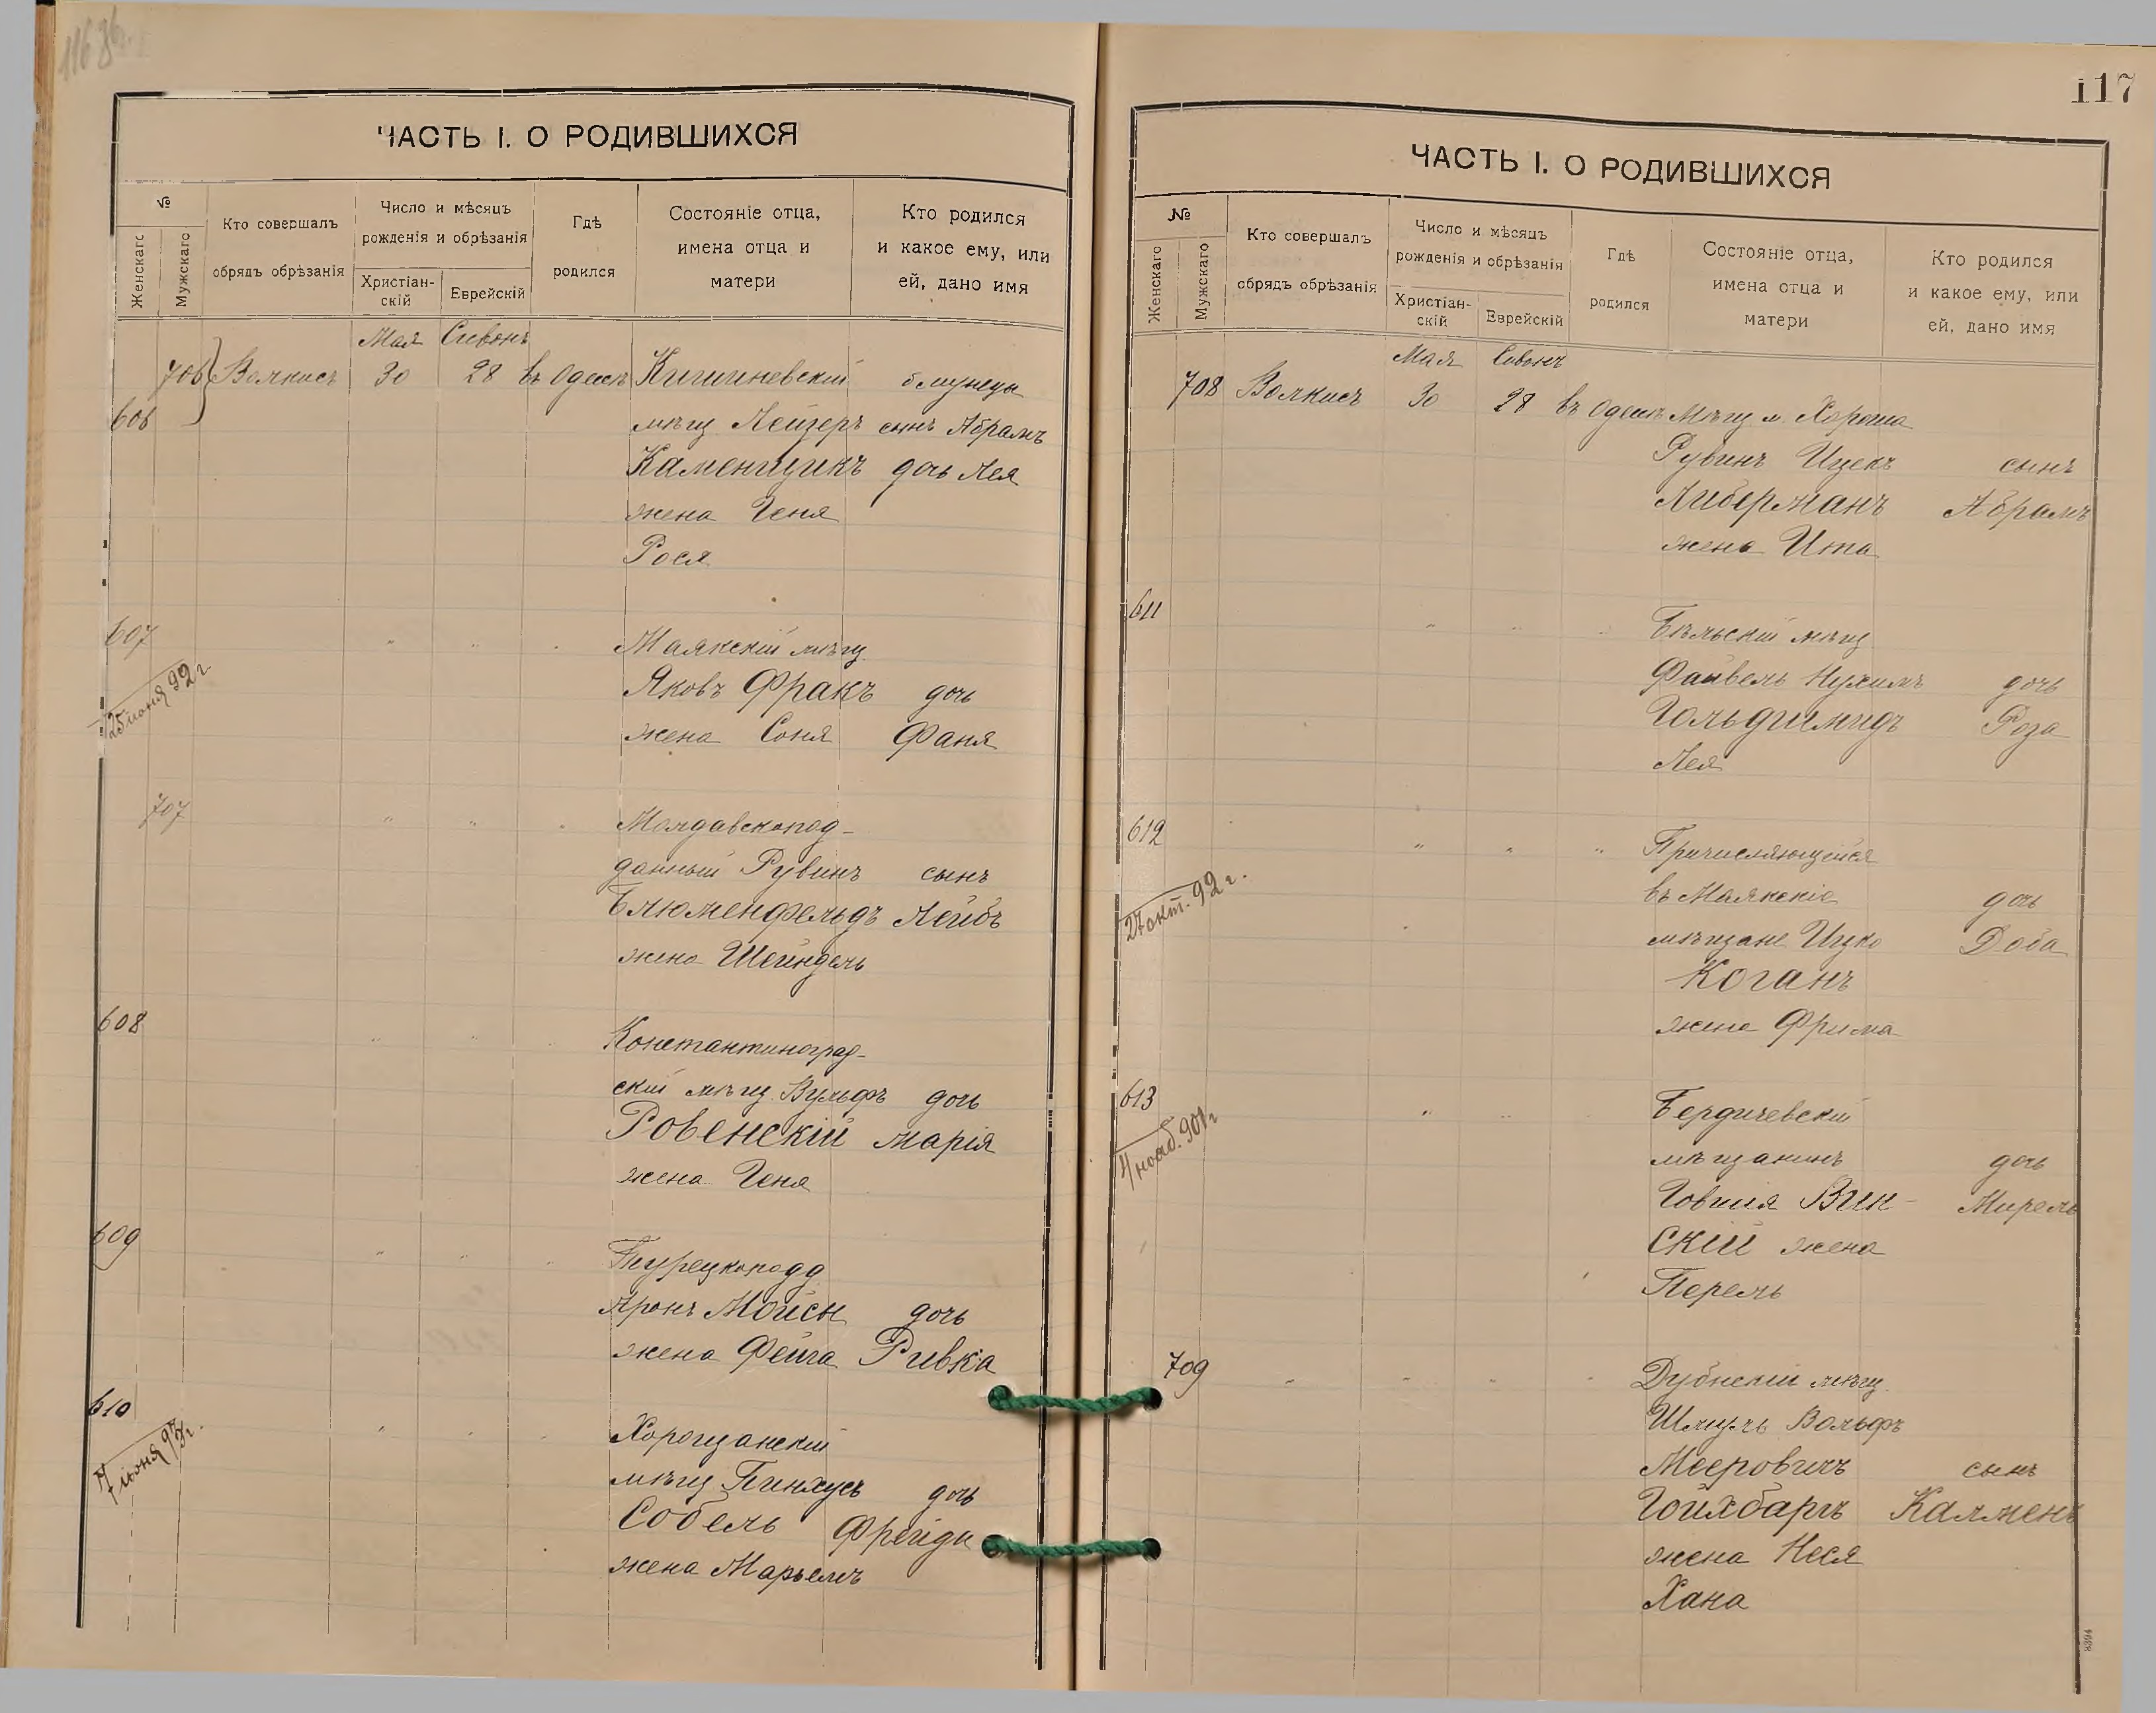 116 об.
ЧАСТЬ I. О РОДИВШИХСЯ
№
Женскаго
Мужскаго
Кто совершалъ
обрядъ обрѣзанія
Число и мѣсяцъ
рожденія и обрѣзанія
Христіан-
скій
Еврейскій
Гдѣ
родился
Состояніе отца,
имена отца и
матери
Кто родился
и какое ему, или
ей, дано имя
Мая Сивонъ
706 Волкисъ 30 28 въ Одессѣ Кишиневскій близнецы
606 мѣщ Лейзеръ сынъ Абрамъ
Каменщикъ дочь Лея
жена Геня
Рося
607 " " " Маякскій мѣщ.
25 июня 92 г. Яковъ Фракъ дочь
жена Соня Фаня
707 " " " Молдавскопод-
данный Рувинъ сынъ
Блюменфельдъ Лейбъ
жена Шейндель
608 " " Константиноград-
скій мѣщ. Вульфъ дочь
Ровенскій Марія
жена Геня
609 " " " Турецкоподд.
Аронъ Мойсы дочь
жена Фейга Ривка
610 " " " Хорощанскій
7 июня 93 г. мѣщ Пинхусъ дочь
Собель Фрейда
жена Марьемъ
117
ЧАСТЬ I. О РОДИВШИХСЯ
№
Женскаго
Мужскаго
Кто совершалъ
обрядъ обрѣзанія
Число и мѣсяцъ
рожденія и обрѣзанія
Христіан-
скій
Еврейскій
Гдѣ
родился
Состояніе отца,
имена отца и
матери
Кто родился
и какое ему, или
ей, дано имя
Мая Сивонъ
708 Волкисъ 30 28 въ Одессѣ Мѣщ м. Хороща
Рувинъ Ицекъ сынъ
Либерманъ Абрамъ
жена Ита
611 " " " Бѣльскій мѣщ
Файвель Нухимъ дочь
Гольдшмидъ Роза
Лея
612 " " " Причисляющійся
27 окт. 92 г. въ Маякскіе дочь
мѣщане Ицко Доба
Коганъ
жена Фрима
613 " " Бердичевскій
1/нояб. 901 г мѣщанинъ дочь
Говшія Вин- Мирель
скій жена
Перель
709 " " " " Дубнскій мѣщ.
Шмуль Вольфъ
Мееровичъ сынъ
Гойхбаргъ Калменъ
жена Неся
Хана
8394